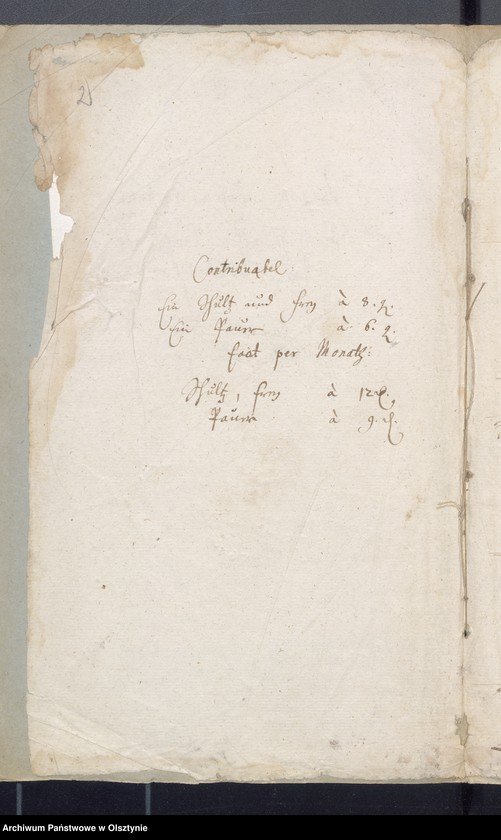 2)
Contribuabel
Ein Schultz und Frey à 8.
Ein Paur à 6.
facit per Monath:
Schultz, Frey à 12
Paur à 9.
Archiwum Państwowe w Olsztynie